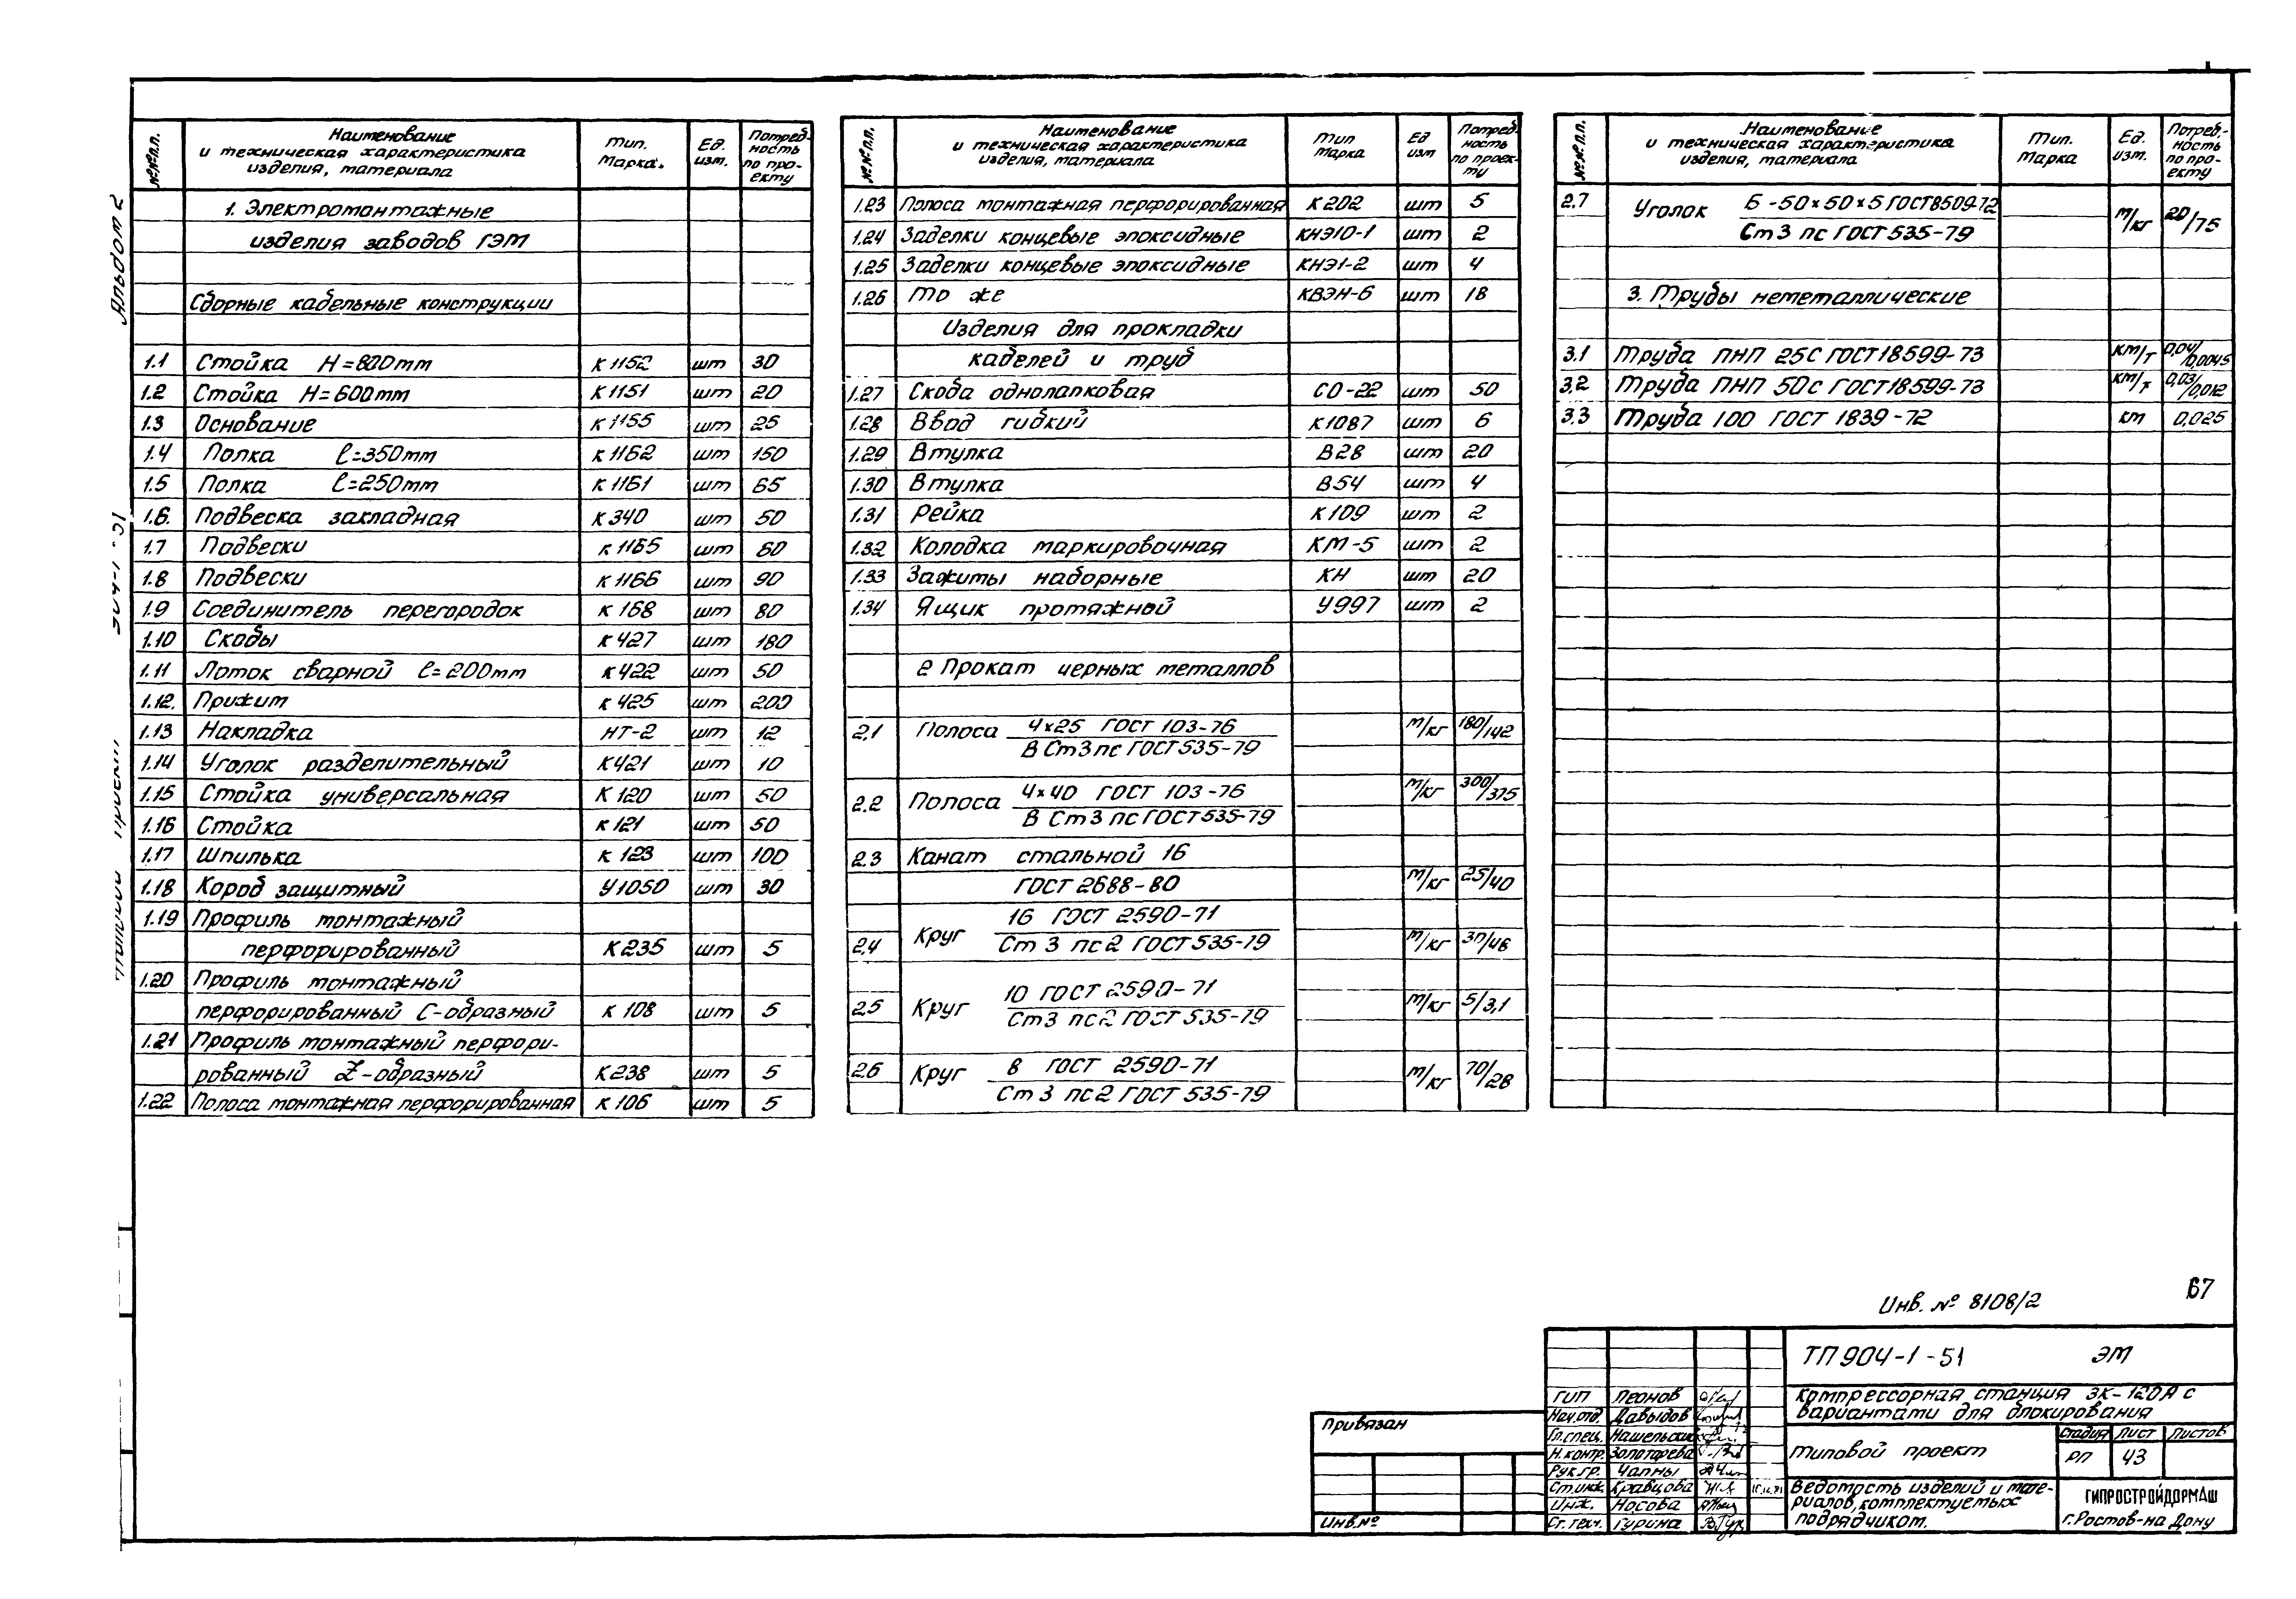 Альбом 2
№№ п.п.
Наименование
и техническая характеристика
изделия, материала
Тип.
Марка.
Ед.
изм.
Потреб-
ность
по про-
екту
1. Электромонтажные
изделия заводов ГЭМ
Сборные кабельные конструкции
1.1 Стойка H=800мм К1152 шт 30
1.2 Стойка H=600мм К1151 шт 20
1.3 Основание К1155 шт 25
1.4 Полка ℓ=350мм К1162 шт 150
1.5 Полка ℓ=250мм К1161 шт 65
1.6. Подвеска закладная К340 шт 50
1.7 Подвески К1165 шт 60
1.8 Подвески К1166 шт 90
1.9 Соединитель перегородок К168 шт 80
1.10 Скобы К427 шт 180
1.11 Лоток сварной ℓ=200мм К422 шт 50
1.12. Прижим К425 шт 200
1.13 Накладка НТ-2 шт 12
1.14 Уголок разделительный К421 шт 10
1.15 Стойка универсальная К120 шт 50
1.16 Стойка К121 шт 50
1.17 Шпилька К123 шт 100
1.18 Короб защитный У1050 шт 30
1.19 Профиль монтажный
перфорированный К235 шт 5
1.20 Профиль монтажный
перфорированный С-образный К108 шт 5
1.21 Профиль монтажный перфори-
рованный Z-образный К238 шт 5
1.22 Полоса монтажная перфорированная К106 шт 5
№№ п.п.
Наименование
и техническая характеристика
изделия, материала
Тип
Марка
Ед
изм
Потреб.
ность
по проек-
ту
1.23 Полоса монтажная перфорированная К202 шт 5
1.24 Заделки концевые эпоксидные КНЭ10-1 шт 2
1.25 Заделки концевые эпоксидные КНЭ1-2 шт 4
1.26 То же КВЭН-6 шт 18
Изделия для прокладки
кабелей и труб
1.27 Скоба однолапковая СО-22 шт 50
1.28 Ввод гибкий К1087 шт 6
1.29 Втулка В28 шт 20
1.30 Втулка В54 шт 4
1.31 Рейка К109 шт 2
1.32 Колодка маркировочная КМ-5 шт 2
1.33 Зажимы наборные КН шт 20
1.34 Ящик протяжной У997 шт 2
2 Прокат черных металлов
2.1 Полоса 4×25 ГОСТ 103-76 м/кг 180/142
В Ст3пс ГОСТ 535-79
2.2 Полоса 4×40 ГОСТ 103-76 м/кг 300/375
В Ст3 пс ГОСТ 535-79
2.3 Канат стальной 16
ГОСТ 2688-80 м/кг 25/40
16 ГОСТ 2590-71
2.4 Круг Ст 3 пс2 ГОСТ 535-79 м/кг 30/48
2.5 Круг 10 ГОСТ 2590-71 м/кг 5/3,1
Ст3 пс2 ГОСТ 535-79
2.6 Круг 8 ГОСТ 2590-71 м/кг 70/28
Ст 3 пс2 ГОСТ 535-79
№№ п.п.
Наименование
и техническая характеристика
изделия, материала
Тип.
Марка
Ед.
изм.
Потреб.-
ность
по про-
екту
2.7 Уголок Б-50×50×5 ГОСТ 8509-72 м/кг 20/75
Ст 3 пс ГОСТ 535-79
3. Трубы неметаллические
3.1 Труба ПНП 25С ГОСТ 18599-73 км/т 0,04/0,0045
3.2 Труба ПНП 50С ГОСТ 18599-73 км/т 0,03/0,012
3.3 Труба 100 ГОСТ 1839-72 км 0,025
67
Инв. № 8108/2
ТП 904-1-51 ЭМ
Компрессорная станция 3К-120А с
вариантами для блокирования
Типовой проект
Стадия Лист Листов
РП 43
Ведомость изделий и мате-
риалов, комплектуемых
подрядчиком.
ГИПРОСТРОЙДОРМАШ
г.Ростов-на Дону
ГИП Леонов
Нач.отд. Давыдов
Гл.спец. Нашельский
Н.контр. Золотарева
Рук.гр. Чалны
Ст.инж. Кравцова
Инж. Носова
Ст.техн. Гурина
Привязан
Инв.№